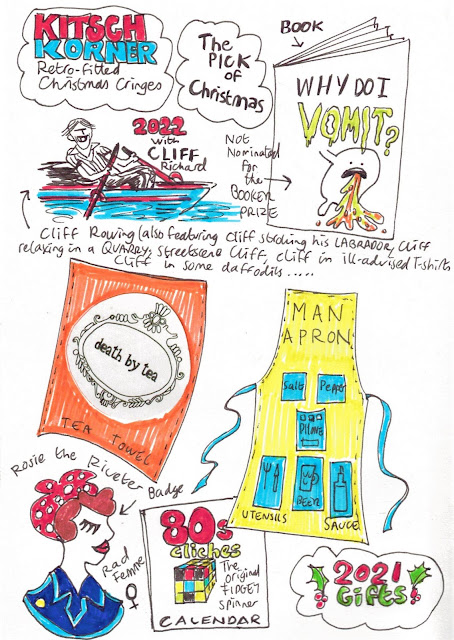 KITSCH
KORNER
Retro-fitted
Christmas Cringes
The
PICK
of
Christmas
BOOK
WHY DO I
VOMIT?
2022
with
CLIFF
Richard
NOT
Nominated
for
the
BOOKER
PRIZE
Cliff Rowing (also featuring Cliff stroking his LABRADOR, Cliff
relaxing in a QUARRY, streetscene Cliff, Cliff in ill-advised T-shirts
Cliff in some daffodils.....
death by tea
TEA TOWEL
MAN
APRON
Salt
Pepper
PHONE
UTENSILS
BEER
SAUCE
Rosie the Riveter
Badge
Rad
Femme
80s
cliches
The
original
FIDGET
spinner
CALENDAR
2021
Gifts